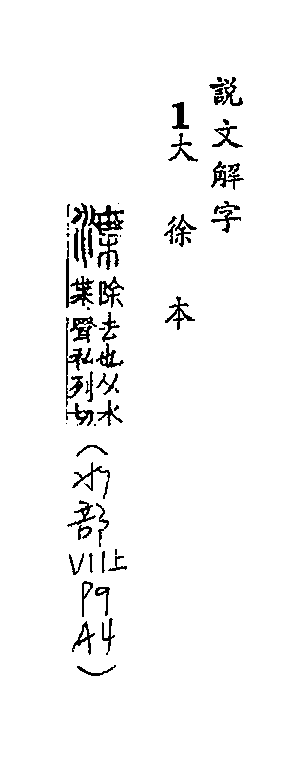 説文解字
1大徐本
渫除去也从水
枼聲私列切
(水部VII上P9A4)